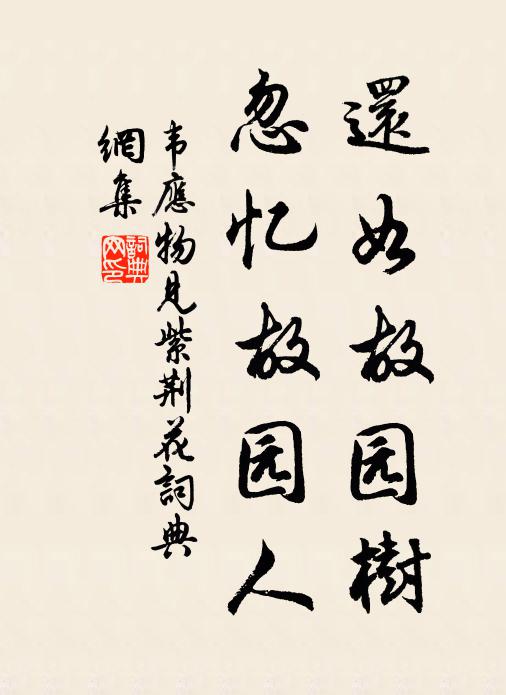 還如故园樹
忽忆故园人
韦應物見紫荆花詞典
網集
詞典
网印